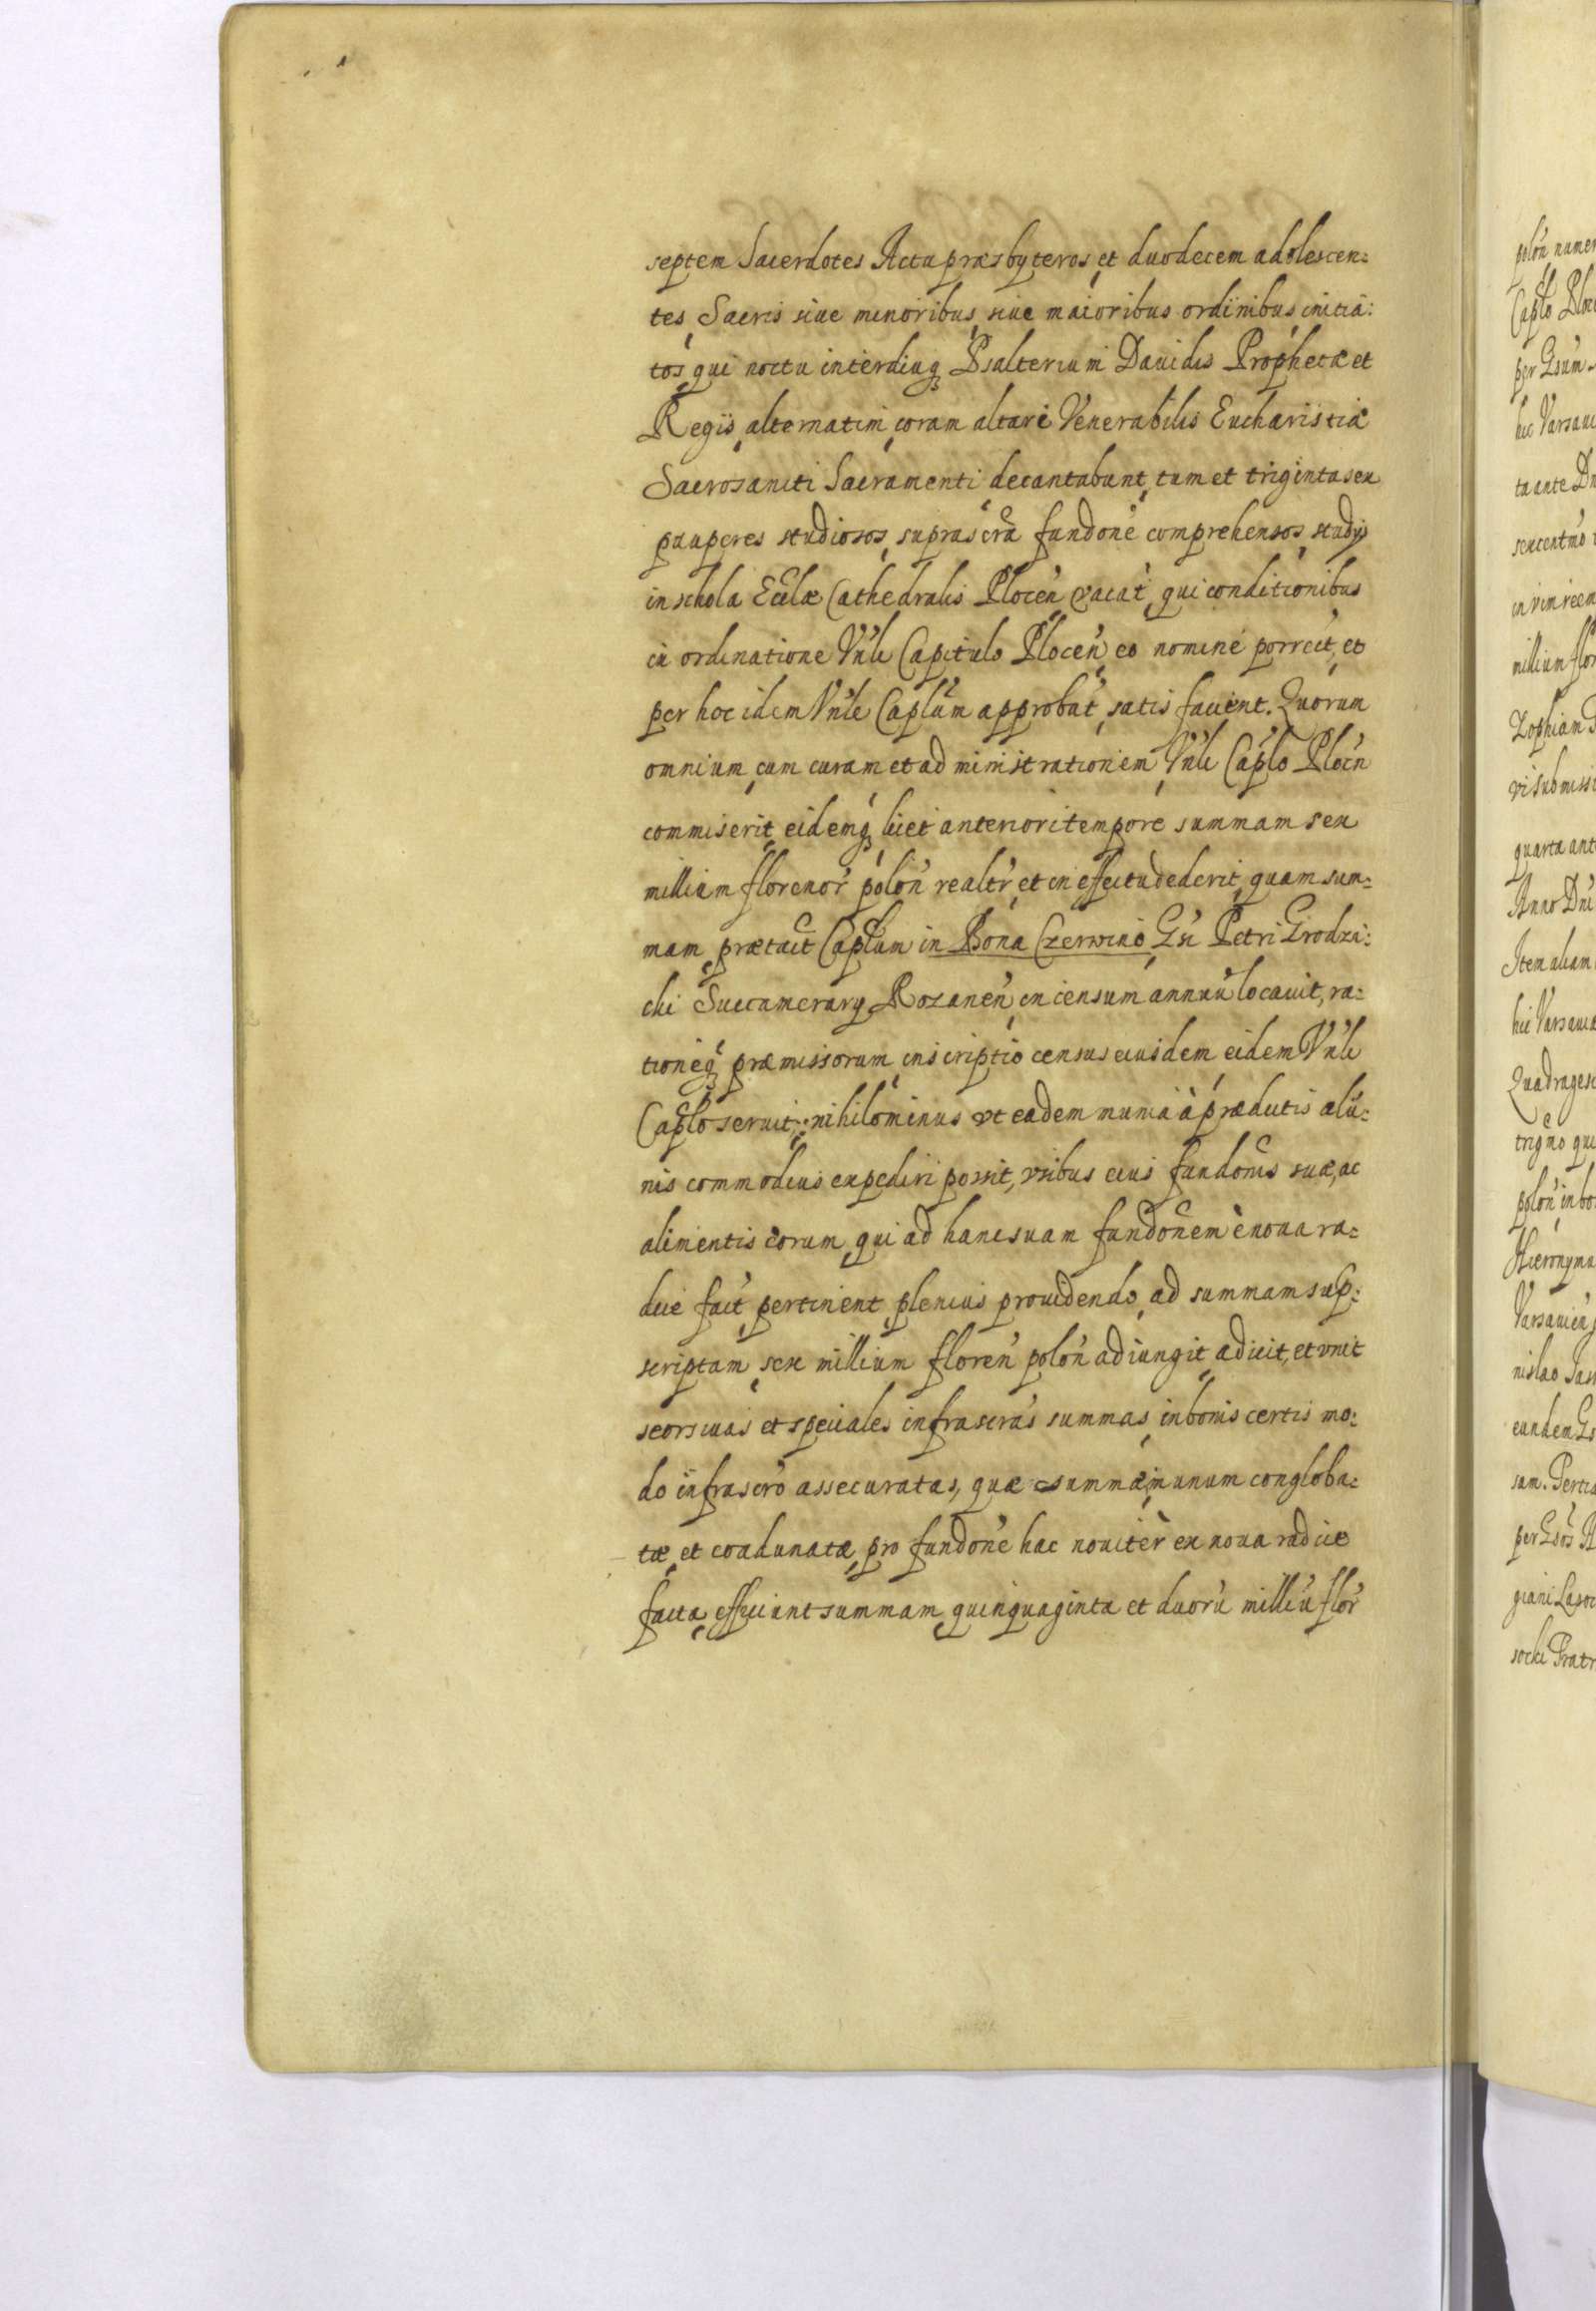 septem Sacerdotes Actu præsbyteros, et duodecem adolescen:
tes, Sacris siue minoribus, siue maioribus ordinibus initia:
tos, qui noctu interdiuq Psalterium Dauidis Prophetæ et
Regis, alternatim, coram altari Venerabilis Eucharistiæ
Sacrosancti Sacramenti decantabunt, tum et triginta sex
pauperes studiosos, suprascra fundone comprehensos, studys
in schola Ecclæ Cathedralis Plocen vacat, qui conditionibus
in ordinatione Vnli Capitulo Plocen, eo nomine porrect, et
per hoc idem Vnle Caplum approbat, satis facient. Quorum
omnium, cum curam et administrationem, Vnli Caplo Plocn
commiserit, eidemq, licet anteriori tempore summam sex
millium florenor polon realtr, et in effectu dederit, quam sum:
mam, prætact Caplum in Bona Czerwino, Gsi Petri Grodzi:
cki Succamerary Rozanen, in censum annuu locauit, ra:
tioneq præmissorum, inscriptio census eiusdem eidem Vnli
Caplo seruit; nihilominus vt eadem munia à prædictis alu:
nis commodius expediri possit, vsibus eius fundonis suæ, ac
alimentis eorum, qui ad hanc suam fundonem è noua ra:
dice fact, pertinent, plenius prouidendo, ad summam sup:
scriptam, sex millium floren polon adiungit, adicit, et vnit
seorsiuas et speciales infrascras summas, in bonis certis mo:
do infrascro assecuratas, quæ summæ, in unum congloba:
tæ, et coadunatæ, pro fundone hac nouiter ex noua radice
facta, efficiunt summam, quinquaginta et duoru milliu flor
polon numer
Caplo Ploc
per Gsum
hic Varsaui
ta ante Dn
in vim reem
millium flor
Zophiam
vi submissi
quarta ant
Anno Dni
Item aliam
hic Varsauiæ
Quadrages
trigno qui
polon in bo
Hieronymu
Varsauien
nislao Jas
eundem Gs
sum. Pertis
per Gsos H
giani Lasoc
socki Fratr